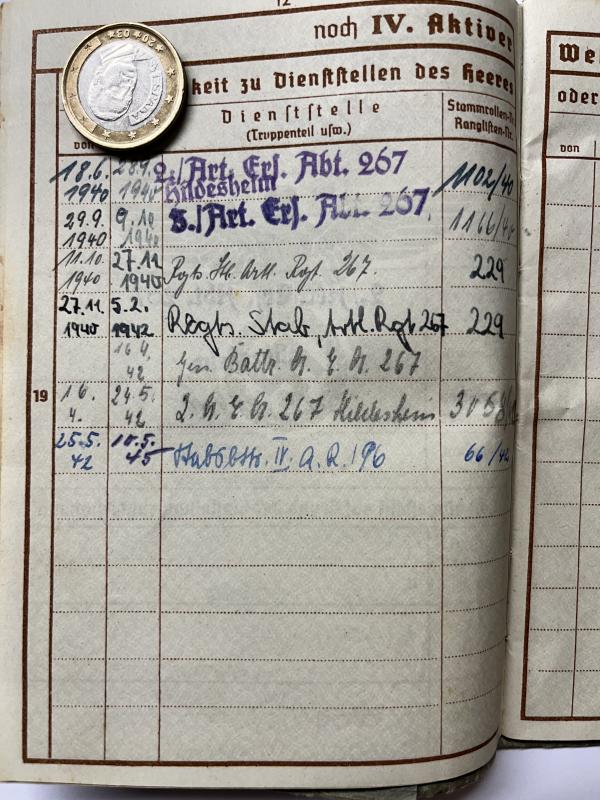 12
noch IV. Aktiver
keit zu Dienststellen des Heeres
von
Dienststelle
(Truppenteil usw.)
Stammrollen-Nr.
Ranglisten-Nr.
18.6. 1940 28.9. 1940 2./Art. Ers. Abt. 267 Hildesheim 1102/40
29.9. 1940 9.10 1940 3./Art. Ers. Abt. 267 1166/40
11.10. 1940 27.11 1940 Rgts. St. Artl. Rgt. 267. 229
27.11. 1940 5.2. 1942 Regts. Stab, Artl. Rgt 267 229
16.4. 42 Gen. Battr. A. E. A. 267
19
16. 4. 24.5. 42 2. A. E. A. 267 Hildesheim 3058/
25.5. 42 10.5. 45 Stabsbttr. IV. A. R. 196 66/42
ESPAÑA
We
oder
von